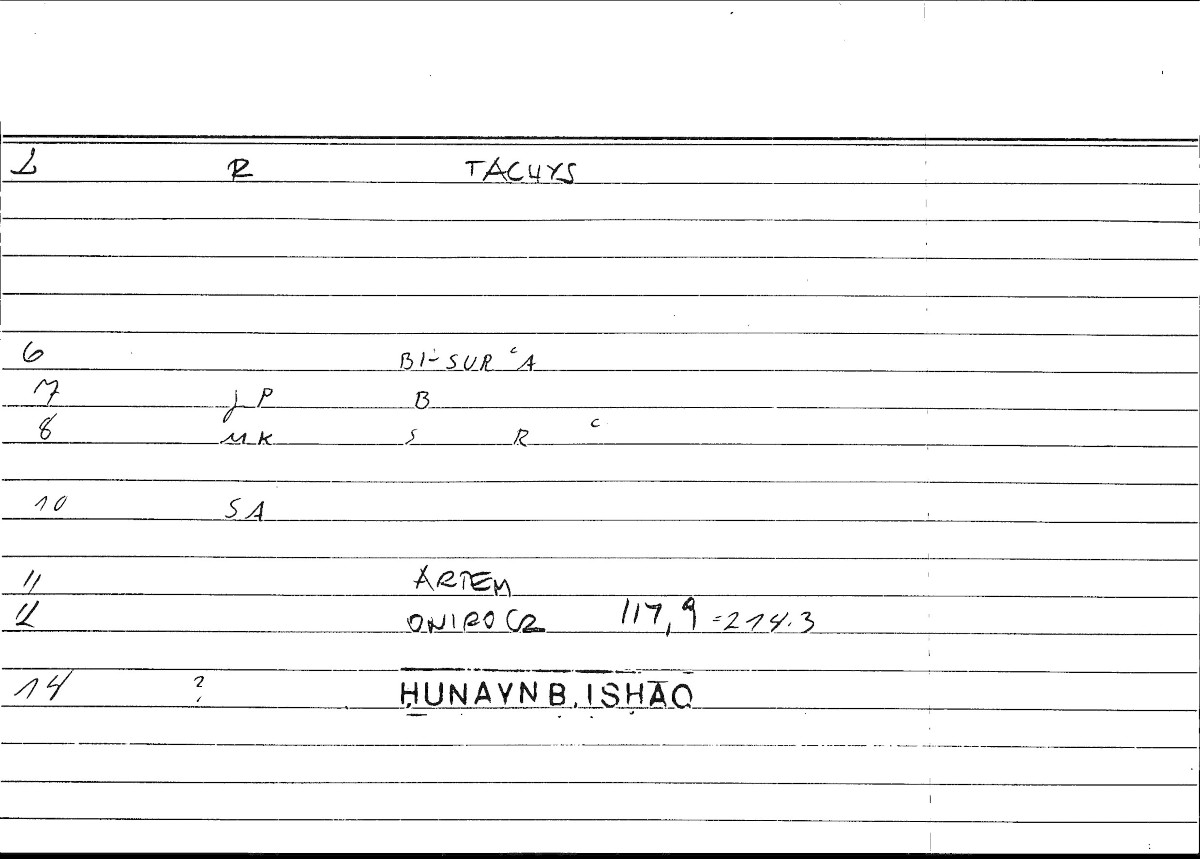 L R TACHYS
6 BI-SURʿA
7 JP B
8 MK S R ʿ
10 SA
11 ARTEM
12 ONIROCR 117,9 =214.3
14 ? ḤUNAYN B. ISḤĀQ